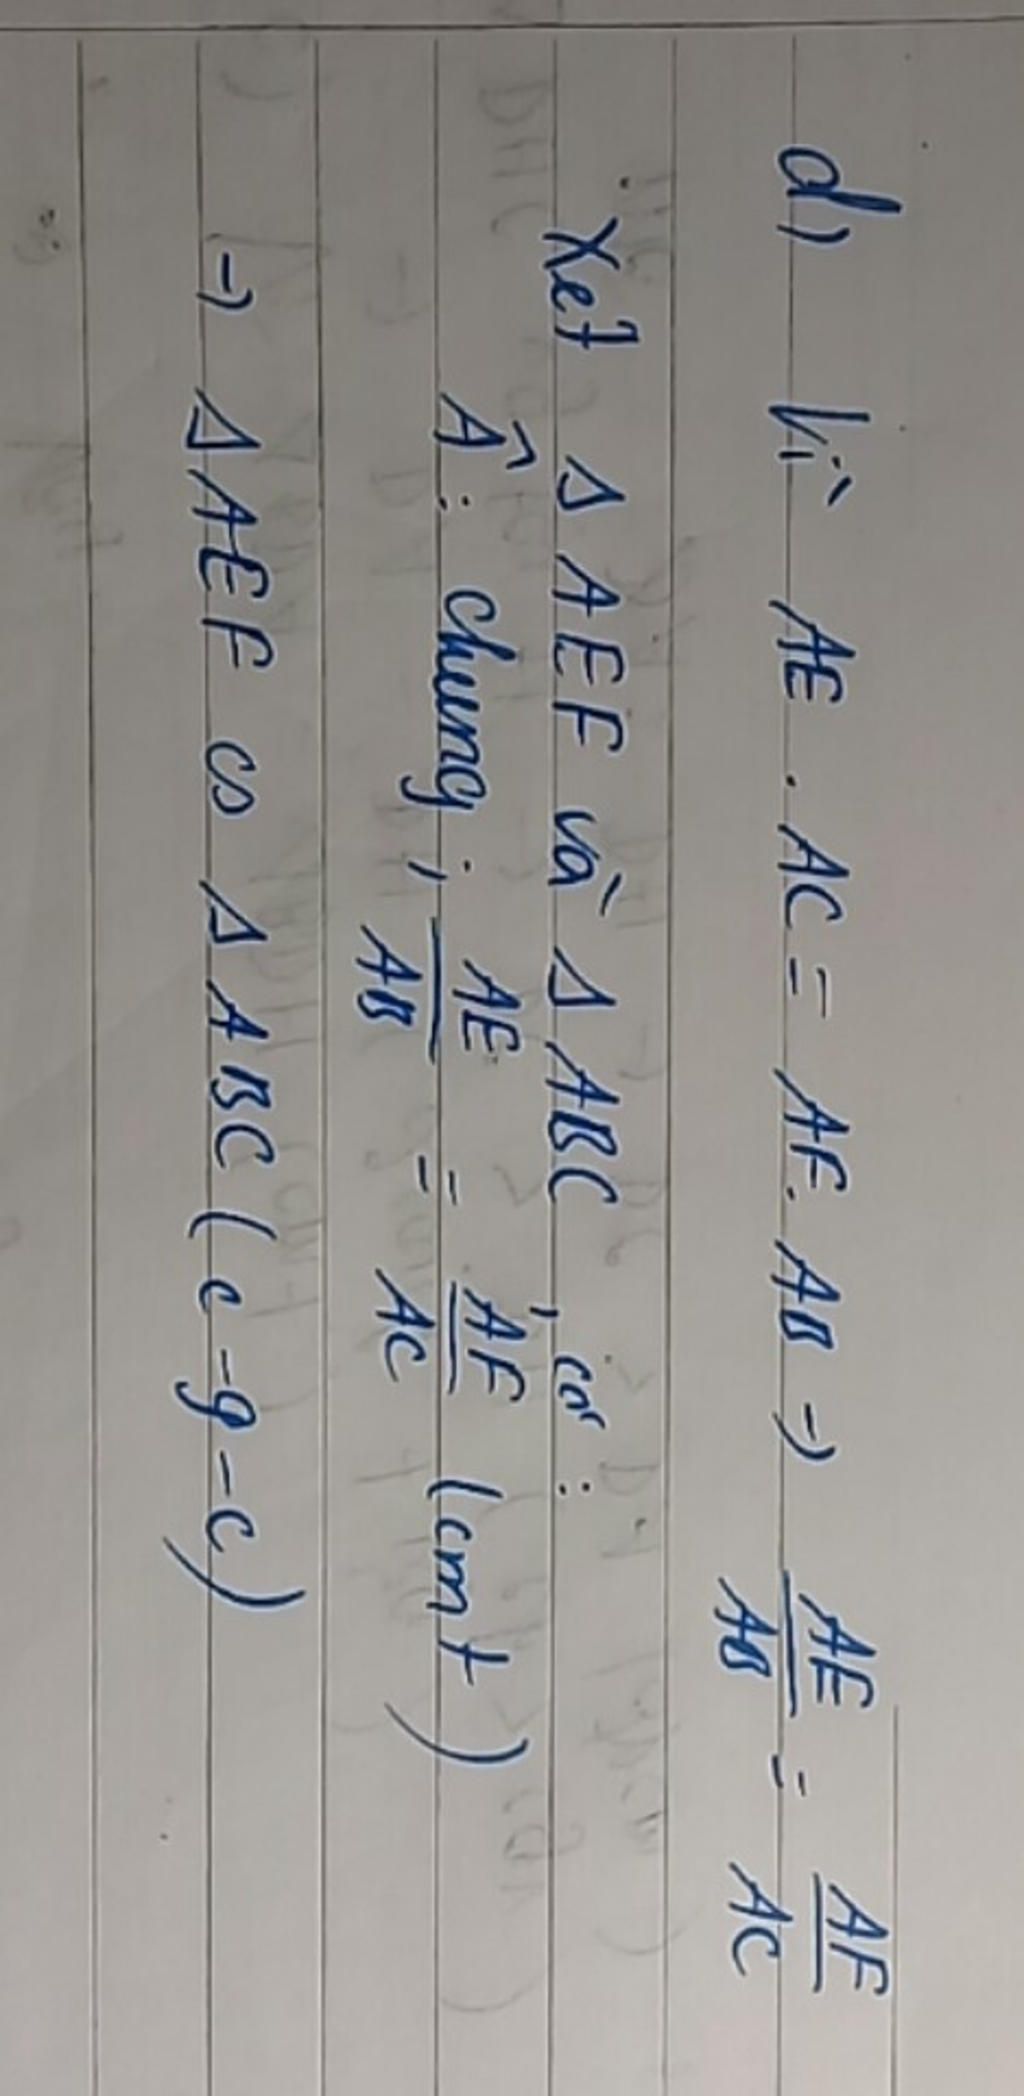 d) Vì AE . AC = AF. AB → AE/AB = AF/AC
Xét Δ AEF và Δ ABC, có :
Â : chung ; AE/AB = AF/AC (cmt)
→ Δ AEF ∽ Δ ABC (c-g-c)